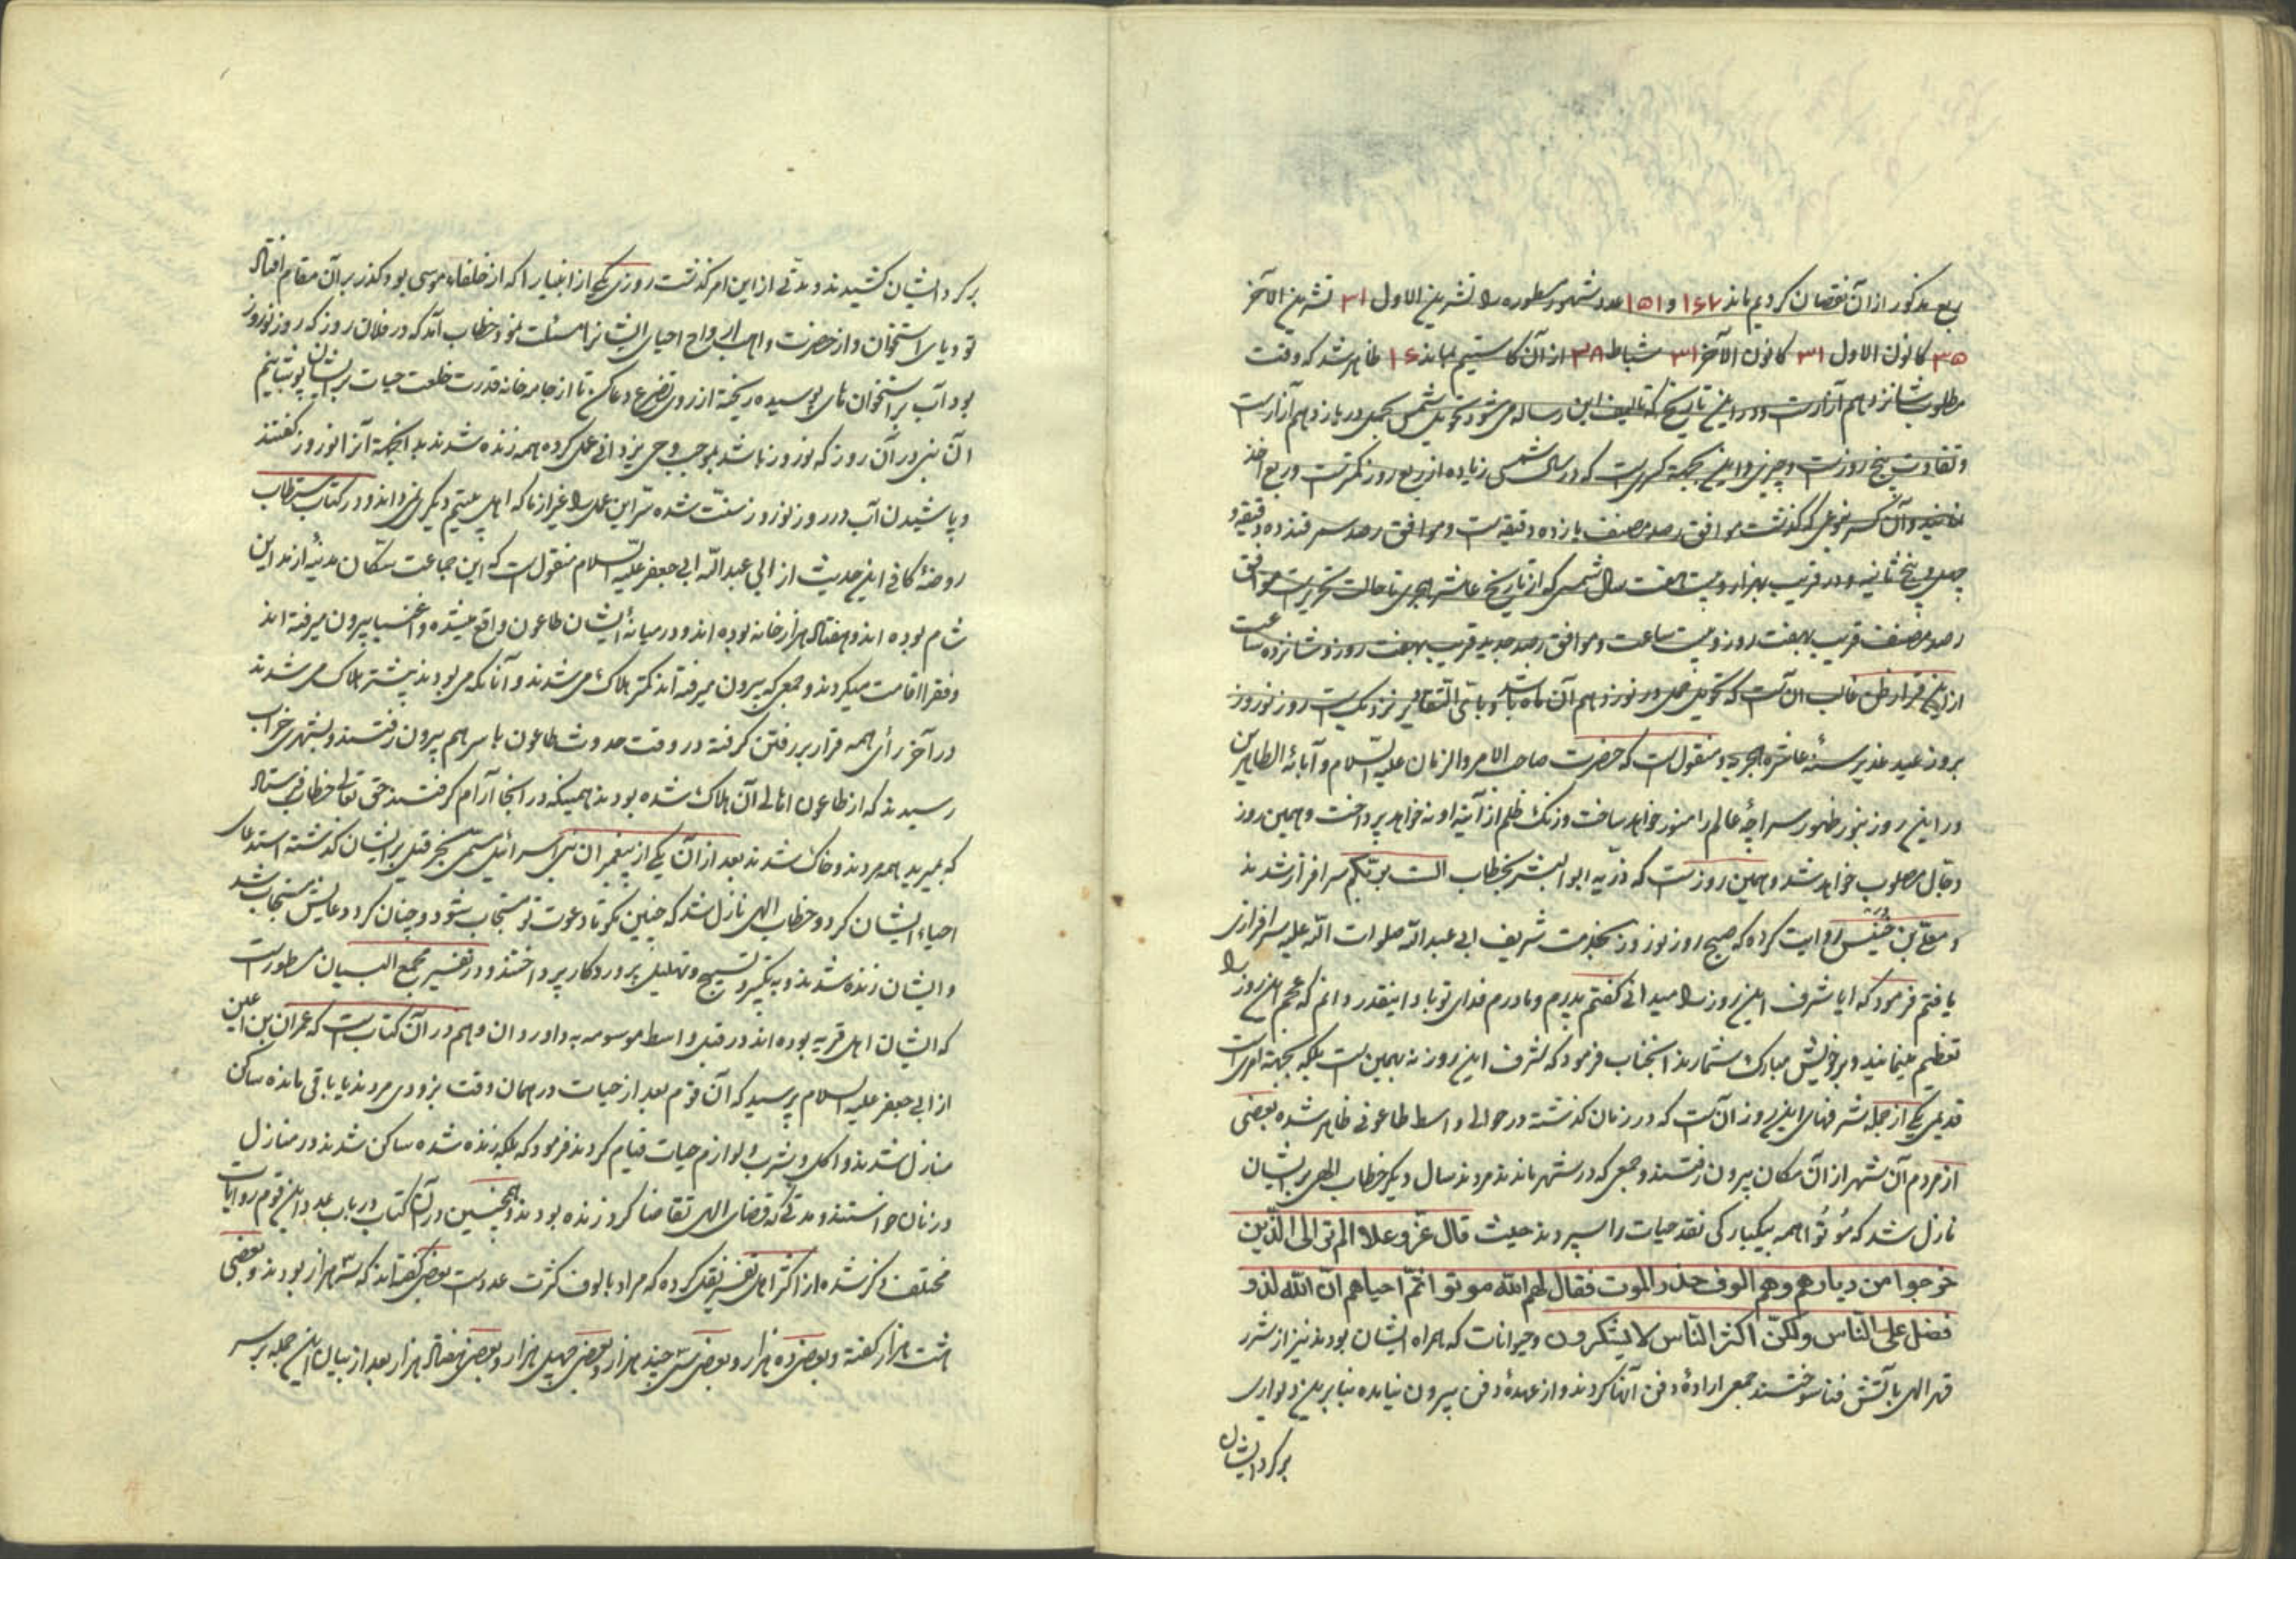 ربع مذکور از آن نقصان کردیم ماند ۱۶۷ و ۱۵۱ عدد شهور مسطوره را تشرین الاول ۳۱ تشرین الآخر
۳۰ کانون الاول ۳۱ کانون الآخر ۳۱ شباط ۲۸ از آن کاستیم بماند ۱۶ ظاهر شد که وقت
مطلوب شانزدهم آزارست و در این تاریخ که تالیف این رساله می شود تحویل شمس بحمل در یازدهم آزارست
و تفاوت پنج روزست و چیزی و این بجهة کسریست که در سال شمسی زیاده از ربع روز نکرفت و ربع اخذ
نمودند و آن کسر بنوعی که گذشت موافق رصد مصنف یازده دقیقه است و موافق رصد سمرقند ده دقیقه و
چهل و پنج ثانیه و در قریب بهزار و بیست و هفت سال شمسی که از تاریخ عاشر هجری تا حالت تحریر است موافق
رصد مصنف قریب بهفت روز و بیست ساعت و موافق رصد جدید قریب بهفت روز و شانزده ساعت
از این قرار ظن غالب آن است که تحویل حمل در نوزدهم آن ماه باشد و باتی التقادیر نزدیک است روز نوروز
بروز عید غدیر سنهٔ عاشره هجریه و منقول است که حضرت صاحب الامر والزمان علیه السلام و آبائه الطاهرین
در این روز بنور ظهور سراچهٔ عالم را منور خواهد ساخت و زنک ظلم از آینه او نه خواهد پرداخت و همین روز
دجال مصلوب خواهد شد و همین روزست که ذریه ابو البشر بخطاب الست بربکم سرافراز شدند
و معلی بن خنیس روایت کرده که صبح روز نوروز بخدمت شریف ابی عبد الله صلوات الله علیه سرافرازی
یافتم فرمود که ایا شرف این روز را میدانی کفتم پدرم و مادرم فدای تو باد اینقدر دانم که عجم این روز را
تعظیم مینمایند و بر خویش مبارک شمارند انجناب فرمود که شرف این روز نه بهمین است بلکه بجهة امریست
قدیمی یکی از جمله شرفهای این روز آن است که در زمان گذشته در حوالی واسط طاعونی ظاهر شده بعضی
از مردم آن شهر از آن مکان بیرون رفتند و جمعی که در شهر ماندند مردند سال دیکر خطاب الهی بر ایشان
نازل شد که مُوتُوا همه بیکبارکی نقد حیات را سپردند حیث قال عزّ وعلا الم تر الی الذین
خرجوا من دیارهم وهم الوف حذر الموت فقال لهم الله موتوا ثمّ احیاهم انّ الله لذو
فضل علی النّاس ولکنّ اکثر النّاس لا یشکرون و حیوانات که همراه ایشان بودند نیز از شرر
قهر الهی بآتش فنا سوختند جمعی ارادهٔ دفن آنها کردند و از عهدهٔ دفن بیرون نیامده بنابرین دیواری
بر کرد ایشان
بر کرد ایشان کشیدند و مدتی از این امر گذشت روزی یکی از انبیا را که از خلفاء موسی بود کذر بر آن مقام افتاد
تودهای استخوان و از حضرت واهب ارواح احیای ایشانرا مسئلت نمود خطاب آمد که در فلان روز که روز نوروز
بود آب بر استخوان های پوسیده ریخته از روی تضرع دعا کن تا از جامه خانه قدرت خلعت حیات بر ایشان پوشانیم
آن نبی در آن روز که نوروز باشد بموجب وحی یزدانی عمل کرده همه زنده شدند بدانجهة آنرا نوروز گفتند
و پاشیدن آب در روز نوروز سنّت شده سرّ این عمل را غیر از ما که اهل بیتیم دیکری نمیداند و در کتاب مستطاب
روضهٔ کافی این حدیث از ابی عبد الله ابی جعفر علیه السلام منقول است که این جماعت سکّان مدینهٔ از مداین
شام بوده اند و هفتاد هزار خانه بوده اند و در میانهٔ ایشان طاعون واقع میشده و اغنیا بیرون میرفته اند
و فقرا اقامت میکردند و جمعی که بیرون میرفته اند کمتر هلاک می شدند و آنانکه می بودند بیشتر هلاک می شدند
در آخر رأی همه قرار بر رفتن کرفته در وقت حدوث طاعون با سر هم بیرون رفتند و بشهری خراب
رسیدند که از طاعون اهالی آن هلاک شده بودند همینکه در انجا آرام کرفتند حق تعالی خطاب فرستاد
که بمیرید همه مردند و خاک شدند بعد از آن یکی از پیغمبران بنی اسرائیل مسمّی بحزقیل بر ایشان گذشته استدعای
احیاء ایشان کرد و خطاب الهی نازل شد که چنین بگو تا دعوت تو مستجاب شود و چنان کرد دعایش مستجاب شد
و ایشان زنده شدند و به تکبیر و تسبیح و تهلیل پروردکار پرداختند و در تفسیر مجمع البیان مسطورست
که ایشان اهل قریه بوده اند در قبل واسط موسومه به داوردان و هم در آن کتاب است که حمران بن اعین
از ابی جعفر علیه السلام پرسید که آن قوم بعد از حیات در همان وقت بزودی مردند یا باقی مانده ساکن
منازل شدند و اکل و شرب و لوازم حیات قیام کردند فرمود که بلکه زنده شده ساکن شدند در منازل
و زنان خواستند و مدتی که قضای الهی تقاضا کرد زنده بودند و همچنین در آن کتاب در باب عدد این قوم روایات
مختلف ذکر شده از اکثر اهل تفسیر نقل کرده که مراد بالوف کثرت عددست بعضی گفته اند که سه هزار بودند و بعضی
هشت هزار کفته و بعضی ده هزار و بعضی سی و چند هزار و بعضی چهل هزار و بعضی هفتاد هزار بعد از بیان این جمله بر سر